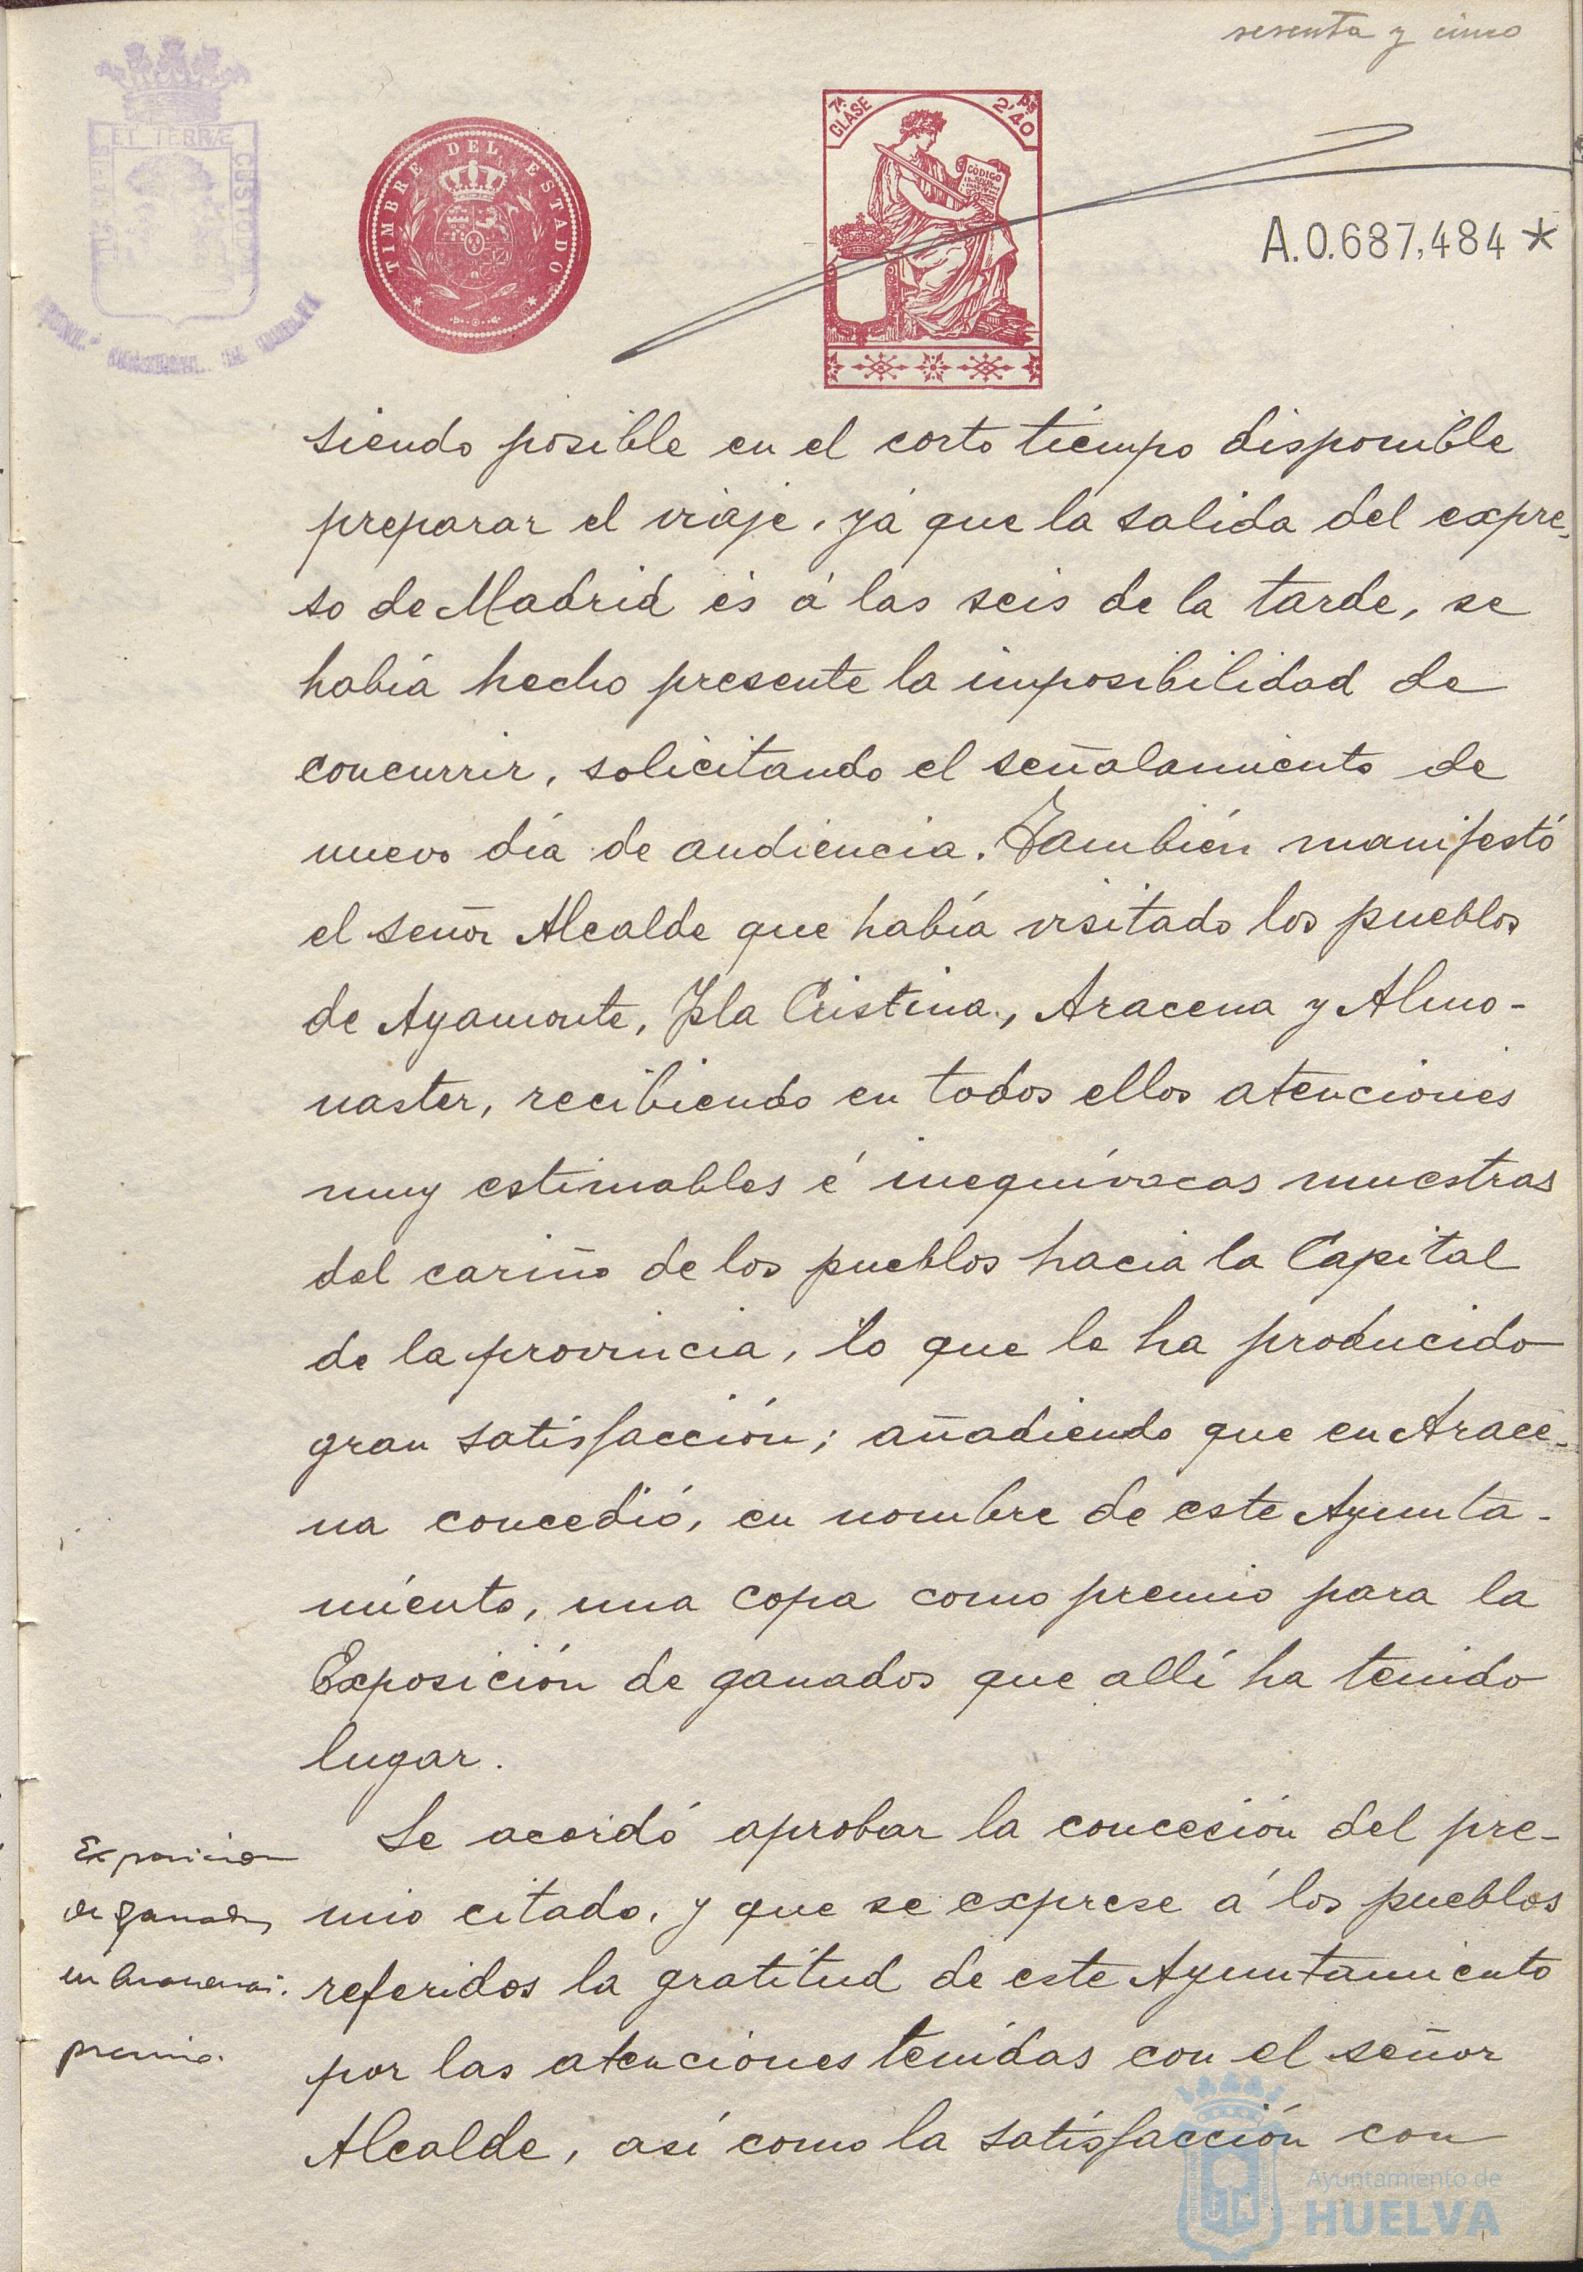 sesenta y cinco
ET TERRÆ
CUSTODIA
TIMBRE DEL ESTADO
7ª CLASE
2'40
CÓDIGO
A.0.687,484 *
siendo posible en el corto tiempo disponible
preparar el viaje, yá que la salida del expre-
so de Madrid és á las seis de la tarde, se
había hecho presente la imposibilidad de
concurrir, solicitando el señalamiento de
nuevo día de audiencia. También manifestó
el señor Alcalde que había visitado los pueblos
de Ayamonte, Isla Cristina, Aracena y Almo-
naster, recibiendo en todos ellos atenciones
muy estimables é inequívocas muestras
del cariño de los pueblos hacia la Capital
de la provincia, lo que le ha producido
gran satisfacción; añadiendo que en Arace-
na concedió, en nombre de este Ayunta-
miento, una copa como premio para la
Exposición de ganados que allí ha tenido
lugar.
Se acordó aprobar la concesión del pre-
mio citado, y que se exprese á los pueblos
referidos la gratitud de este Ayuntamiento
por las atenciones tenidas con el señor
Alcalde, así como la satisfacción con
Exposicion
de ganados
en Aracena.
premio.
Ayuntamiento de
HUELVA